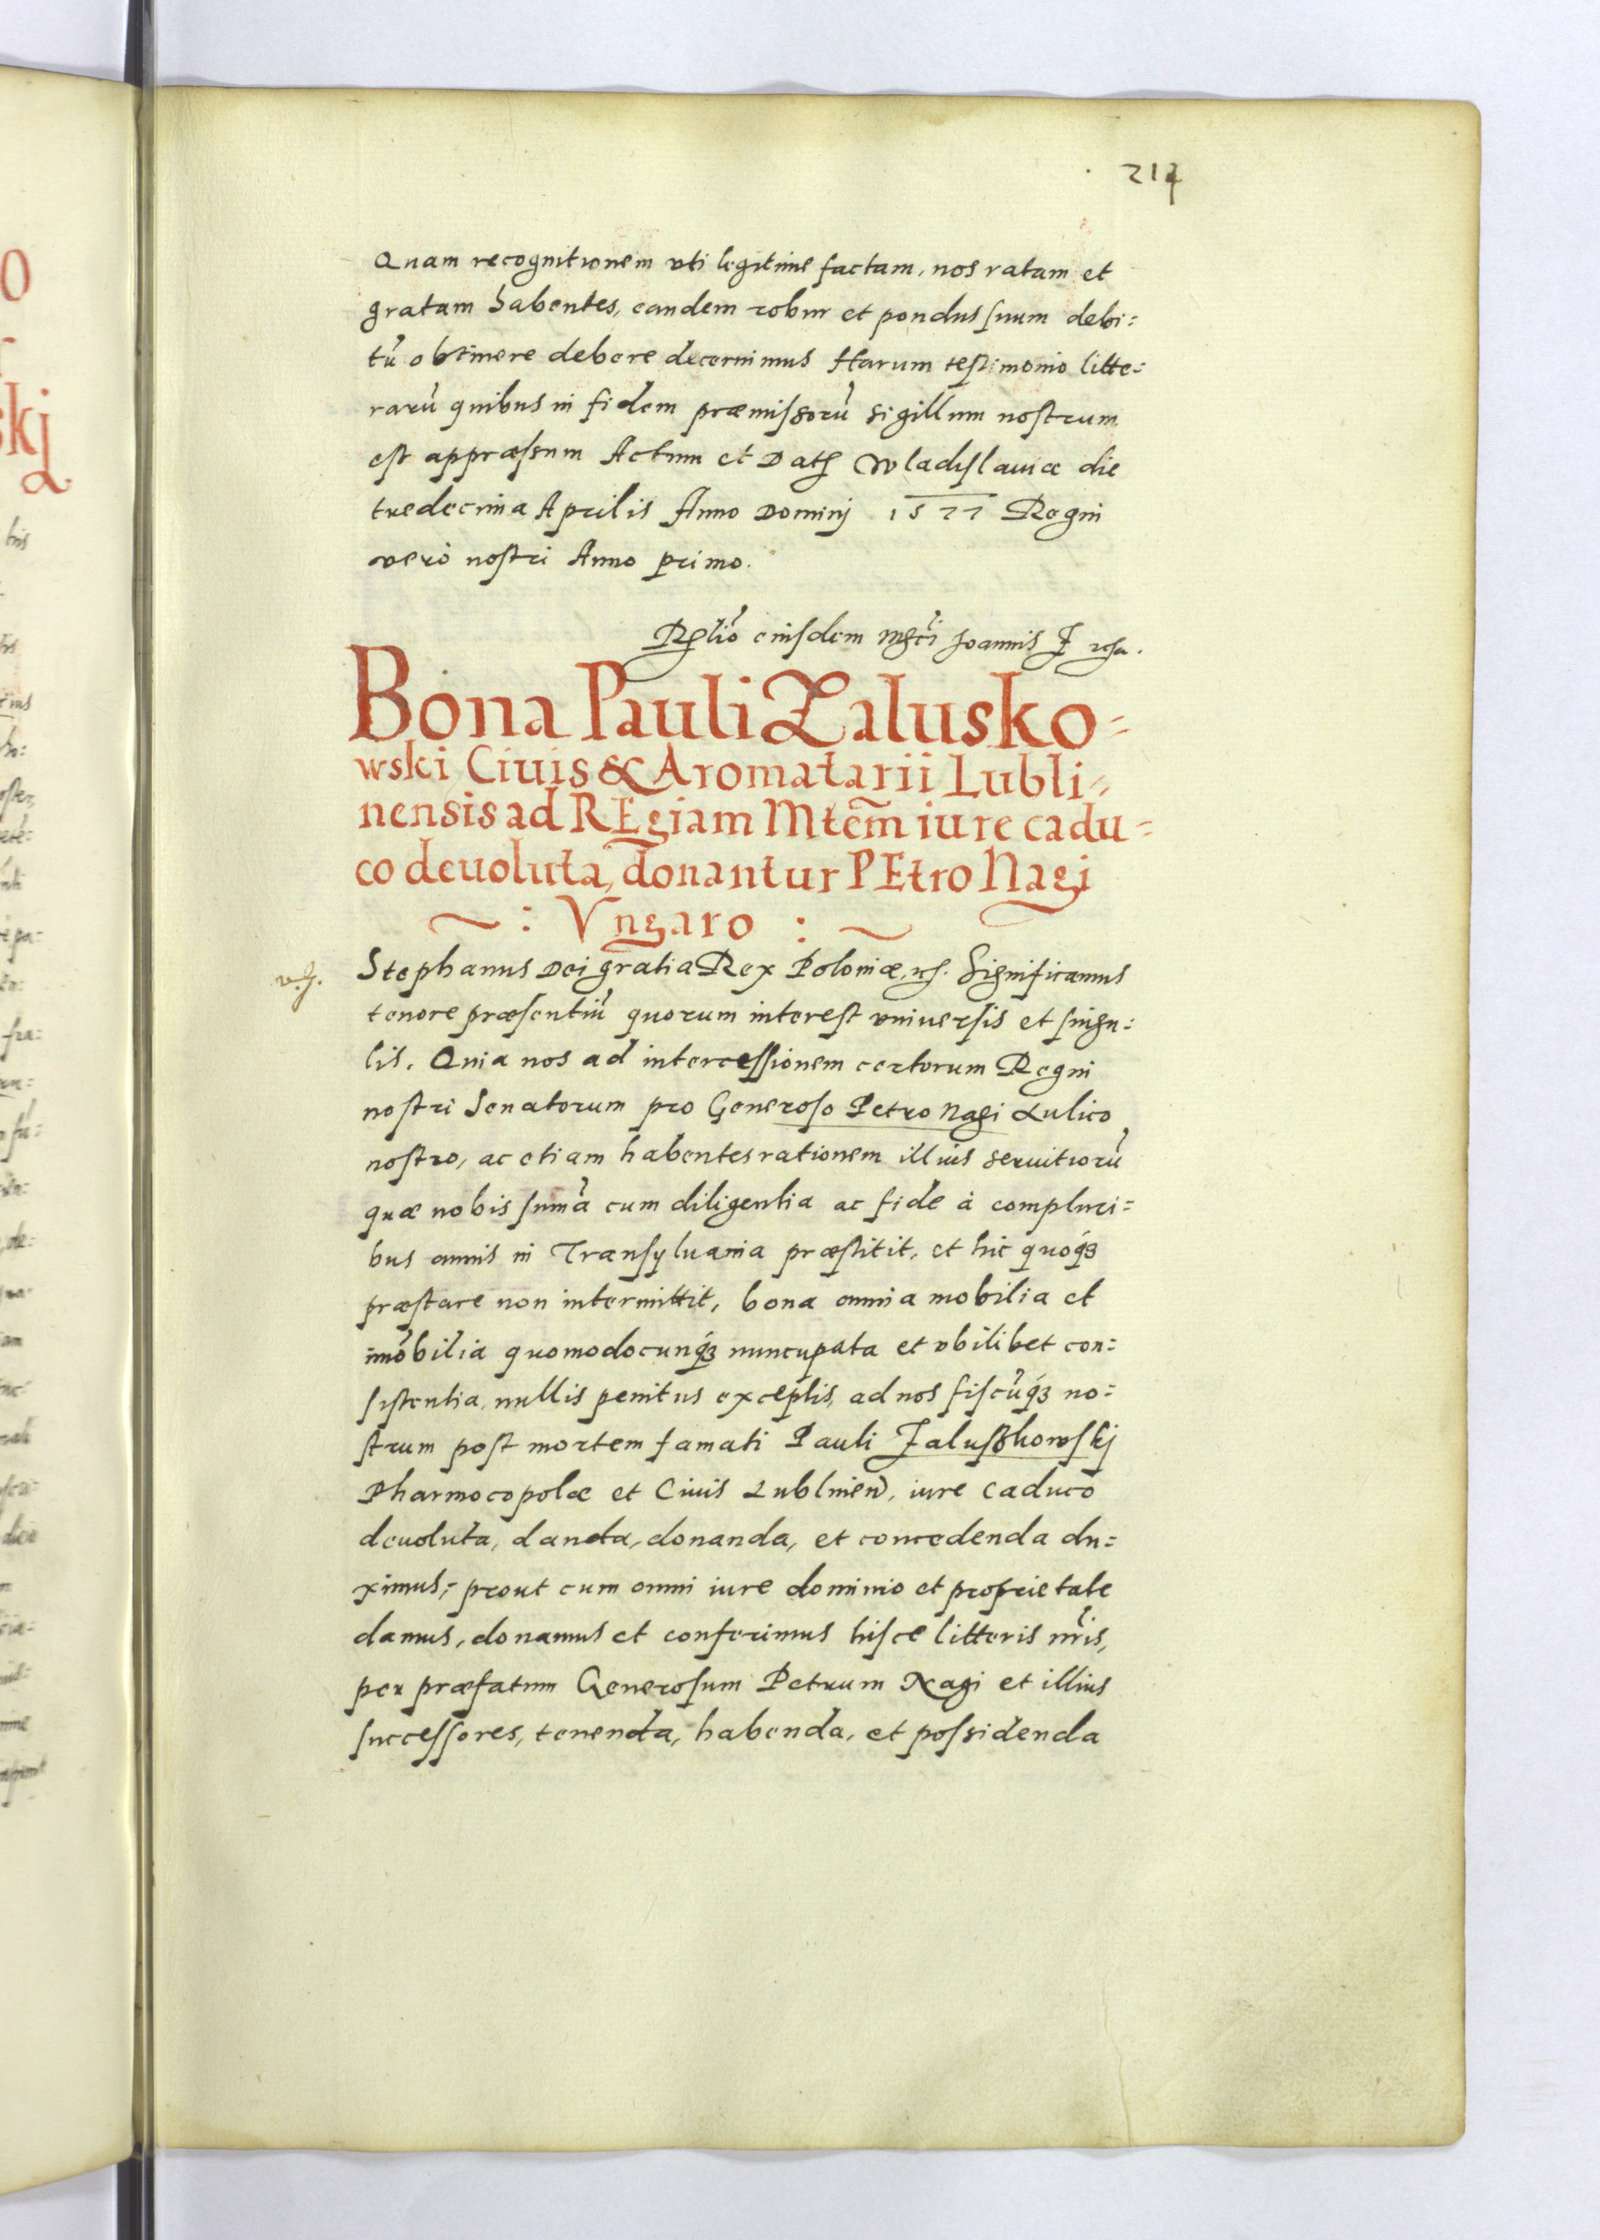 214
Quam recognitionem vti legitime factam, nos ratam et
gratam habentes, eandem robur et pondus suum debi:
tũ obtinere debere decernimus Harum testimonio litte:
rarũ quibus in fidem præmissorũ sigillum nostrum
est appræssum Actum et Datȩ Wladislauiæ die
tredecima Aprilis Anno Dominj 1577 Regni
verò nostri Anno primo.
Rȩlió eiusdem Joannis Z
Bona Pauli Zalusko-
wski Ciuis & Aromatarii Lubli-
nensis ad REgiam Mtem̃ iure cadu-
co deuoluta, donantur PEtro Nagi
~ : Vngaro : ~
Stephanus Dei gratia Rex Poloniæ, Significamus
tenore præsentiũ quorum interest vniuersis et singu:
lis. Quia nos ad intercessionem certorum Regni
nostri Senatorum pro Generoso Petro Nagi Aulico
nostro, ac etiam habentes rationem illius seruitiorũ
quæ nobis sum̃a cum diligentia ac fide à compluri:
bus annis in Transyluania præstitit, et hic quoqꝫ
præstare non intermittit, bona omnia mobilia et
im̃obilia quomodocunqꝫ nuncupata et vbilibet con:
sistentia, nullis penitus exceptis, ad nos fiscũqꝫ no:
strum post mortem famati Pauli Zaluskowskj
Pharmocopolæ et Ciuis Lublinen̄, iure caduco
deuoluta, danda, donanda, et concedenda du:
ximus, prout cum omni iure dominio et proprietate
damus, donamus et conferimus hisce litteris nr̃is,
per præfatum Generosum Petrum Nagi et illius
successores, tenenda, habenda, et possidenda